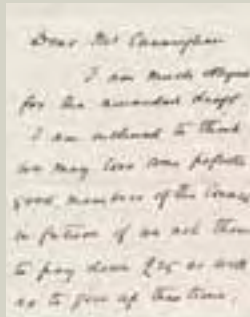 Dear Mr Cunningham
I am much obliged
for the amended draft
I am inclined to think
we may lose some
good members of the Council
in future if we ask them
to pay down £25 as well
as to give up their time.